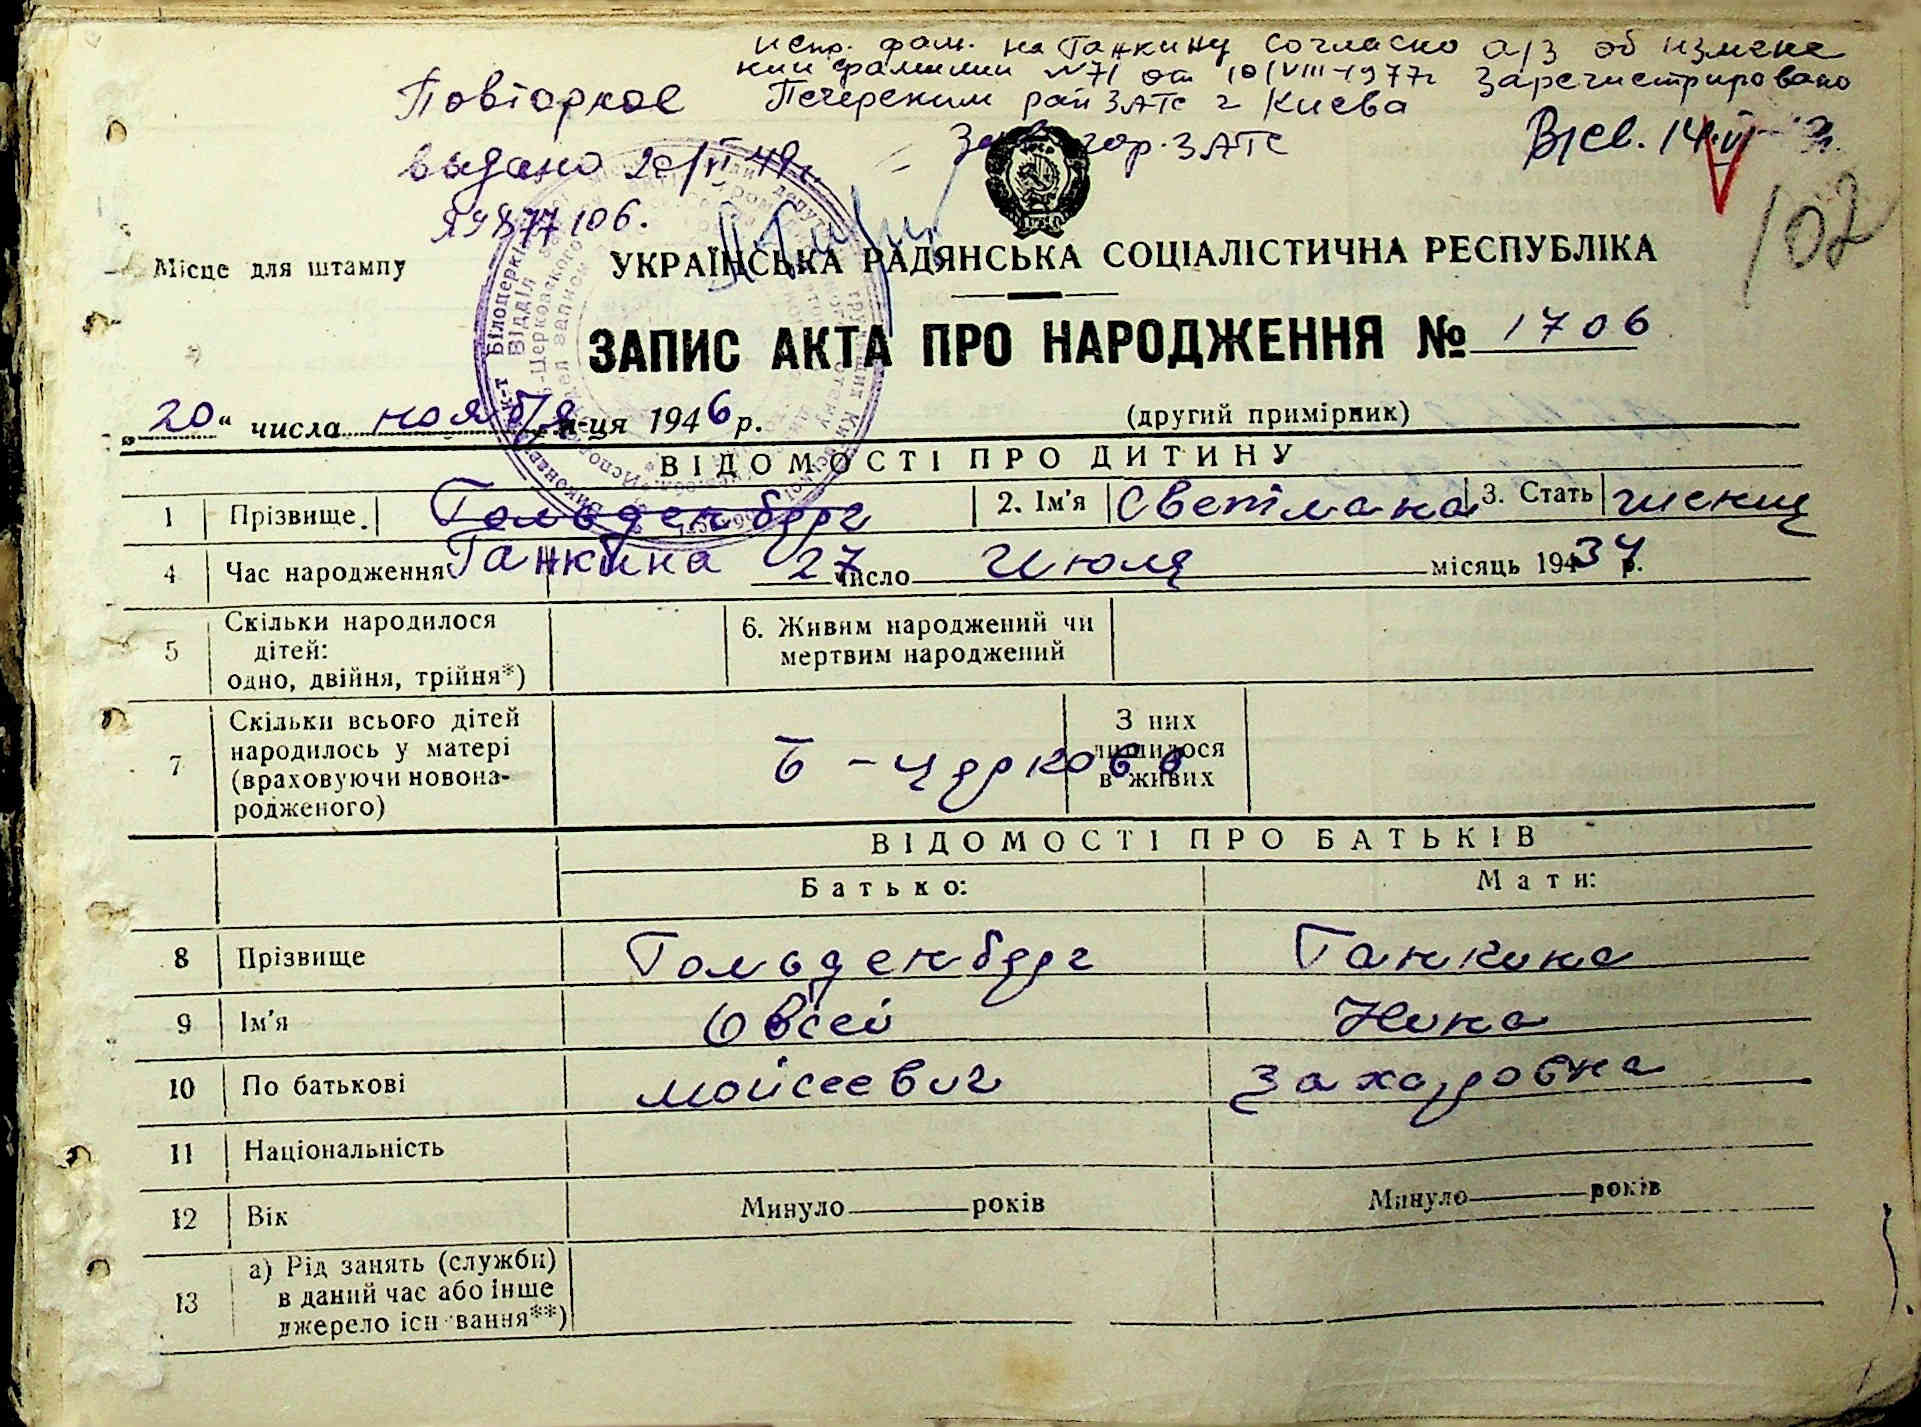 испр. фам. на Ганкину согласно а/з об измене
нии фамилии №71 от 10/VIII-1977г зарегистрировано
Печерским рай ЗАГС г Киева
Повторное
выдано 20/VI 49г.
гор. ЗАГС
102
Місце для штампу
УКРАЇНСЬКА РАДЯНСЬКА СОЦІАЛІСТИЧНА РЕСПУБЛІКА
ЗАПИС АКТА ПРО НАРОДЖЕННЯ № 1706
„20“ числа ноября м-ця 1946 р. (другий примірник)
ВІДОМОСТІ ПРО ДИТИНУ
1 Прізвище. Гольденберг 2. Ім'я Светлана 3. Стать женщ
Ганкина
4 Час народження 27 число Июля місяць 1934 р.
5 Скільки народилося дітей: одно, двійня, трійня*) 6. Живим народжений чи мертвим народжений
7 Скільки всього дітей народилось у матері (враховуючи новона-родженого) Б-Церковь З них лишилося в живих
ВІДОМОСТІ ПРО БАТЬКІВ
Батько: Мати:
8 Прізвище Гольденберг Ганкина
9 Ім'я Овсей Нина
10 По батькові Мойсеевич Захаровна
11 Національність
12 Вік Минуло років Минуло років
13 а) Рід занять (служби) в даний час або інше джерело існування**)